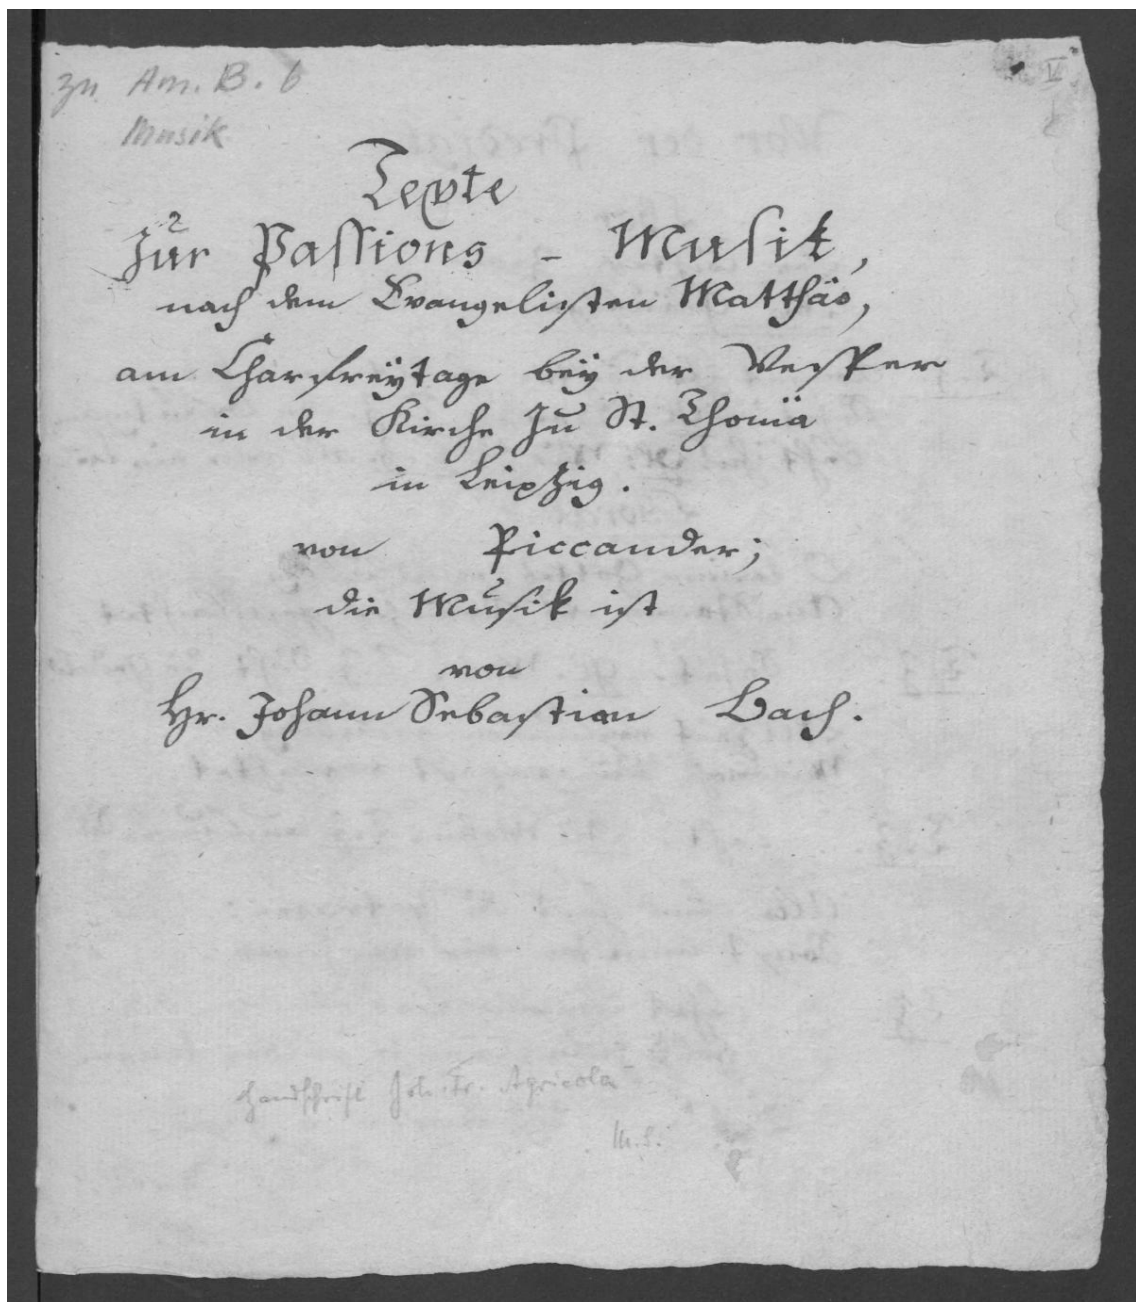 zu Am. B. 6
Musik
Texte
zur Passions - Musik,
nach dem Evangelisten Matthäo,
am Charfreÿtage beÿ der Vesper
in der Kirche zu St. Thomä
in Leipzig.
von Piccander;
die Musik ist
von
Hr. Johann Sebastian Bach.
Handschrift Joh. Fr. Agricola
M. S.